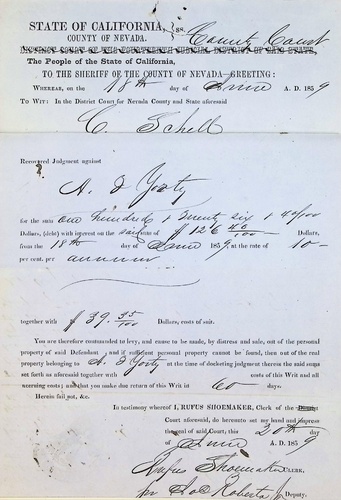 STATE OF CALIFORNIA, } ss. County Court
COUNTY OF NEVADA.
DISTRICT COURT OF THE FOURTEENTH JUDICIAL DISTRICT OF SAID STATE,
The People of the State of California,
TO THE SHERIFF OF THE COUNTY OF NEVADA—GREETING:
WHEREAS, on the 18th day of June A. D. 1859
TO WIT: In the District Court for Nevada County and State aforesaid
C. Schell
Recovered Judgment against
A. J Yorty
for the sum one hundred & Twenty six & 40/100
Dollars, (debt) with interest on the said sum of $126 40/100 Dollars,
from the 18th day of June 1859, at the rate of 10-
per cent. per annum
together with $39.35/100 Dollars, costs of suit.
You are therefore commanded to levy, and cause to be made, by distress and sale, out of the personal
property of said Defendant, and if sufficient personal property cannot be found, then out of the real
property belonging to A. J Yorty at the time of docketing judgment therein the said sums
set forth as aforesaid together with $ costs of this Writ and all
accruing costs; and that you make due return of this Writ in 60 days.
Herein fail not, &c.
In testimony whereof I, RUFUS SHOEMAKER, Clerk of the District
Court aforesaid, do hereunto set my hand and impress
the seal of said Court, this 20th day
of June A. D. 1859
Rufus Shoemaker CLERK,
per Jo Roberts Jr Deputy.